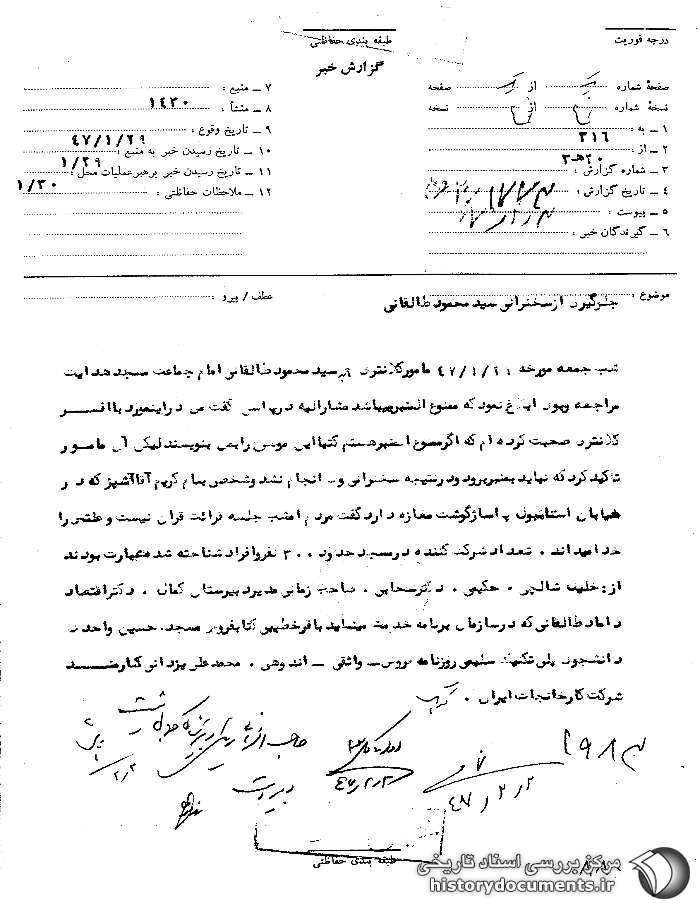 درجه فوریت
طبقه بندی حفاظتی
گزارش خبر
صفحهٔ شماره از صفحه
نسخهٔ شماره از نسخه
۱ ـ به : ۳۱۶
۲ ـ از : ۲۰ هـ ۳
۳ ـ شماره گزارش :
۴ ـ تاریخ گزارش :
۵ ـ پیوست :
۶ ـ گیرندگان خبر :
۷ ـ منبع : ۱۴۳۰
۸ ـ منشأ :
۹ ـ تاریخ وقوع : ۴۷/۱/۲۹
۱۰ ـ تاریخ رسیدن خبر به منبع : ۱/۲۹
۱۱ ـ تاریخ رسیدن خبر برهبرعملیات محل : ۱/۳۰
۱۲ ـ ملاحظات حفاظتی :
موضوع : جلوگیری از سخنرانی سید محمود طالقانی
عطف / پیرو :
شب جمعه مورخه مامور کلانتری به سید محمود طالقانی امام جماعت مسجد هدایت
مراجعه وبوی ابلاغ نمود که ممنوع المنبر میباشد مشارالیه در پاسخ گفت من در اینمورد با افسر
کلانتری صحبت کرده ام که اگر ممنوع المنبر هستم کتبا این موضوع را بمن بنویسند لیکن آن مامور
تاکید کرد که نباید بمنبر برود ودر نتیجه سخنرانی وی انجام نشد وشخصی بنام کریم آقا آشپز که در
خیابان استانبول پاساژ گوشت مغازه دارد گفت مردم امشب جلسه قرائت قران نیست و علتش را
خدا میداند . تعداد شرکت کننده در مسجد حدود ۳۰۰ نفر وافراد شناخته شده عبارت بودند
از : خلیف شالچی . حکیمی . دکتر سحابی . صاحب زمانی مدیر دبیرستان کمال . دکتر اقتصاد
داماد طالقانی که در سازمان برنامه خدمت مینماید باقر خطیبی کتابفروش مسجد . حسین واحدی
دانشجوی پلی تکنیک سلیمی روزنامه فروش ـ واثقی ـ اندوهی . محمد علی یزدانی کارمند
شرکت کارخانجات ایران .
۱۹۸۳
۴۷/۲/۲
۴۷/۲/۲
۲/۲
طبقه بندی حفاظتی
مرکز بررسی اسناد تاریخی
historydocuments.ir